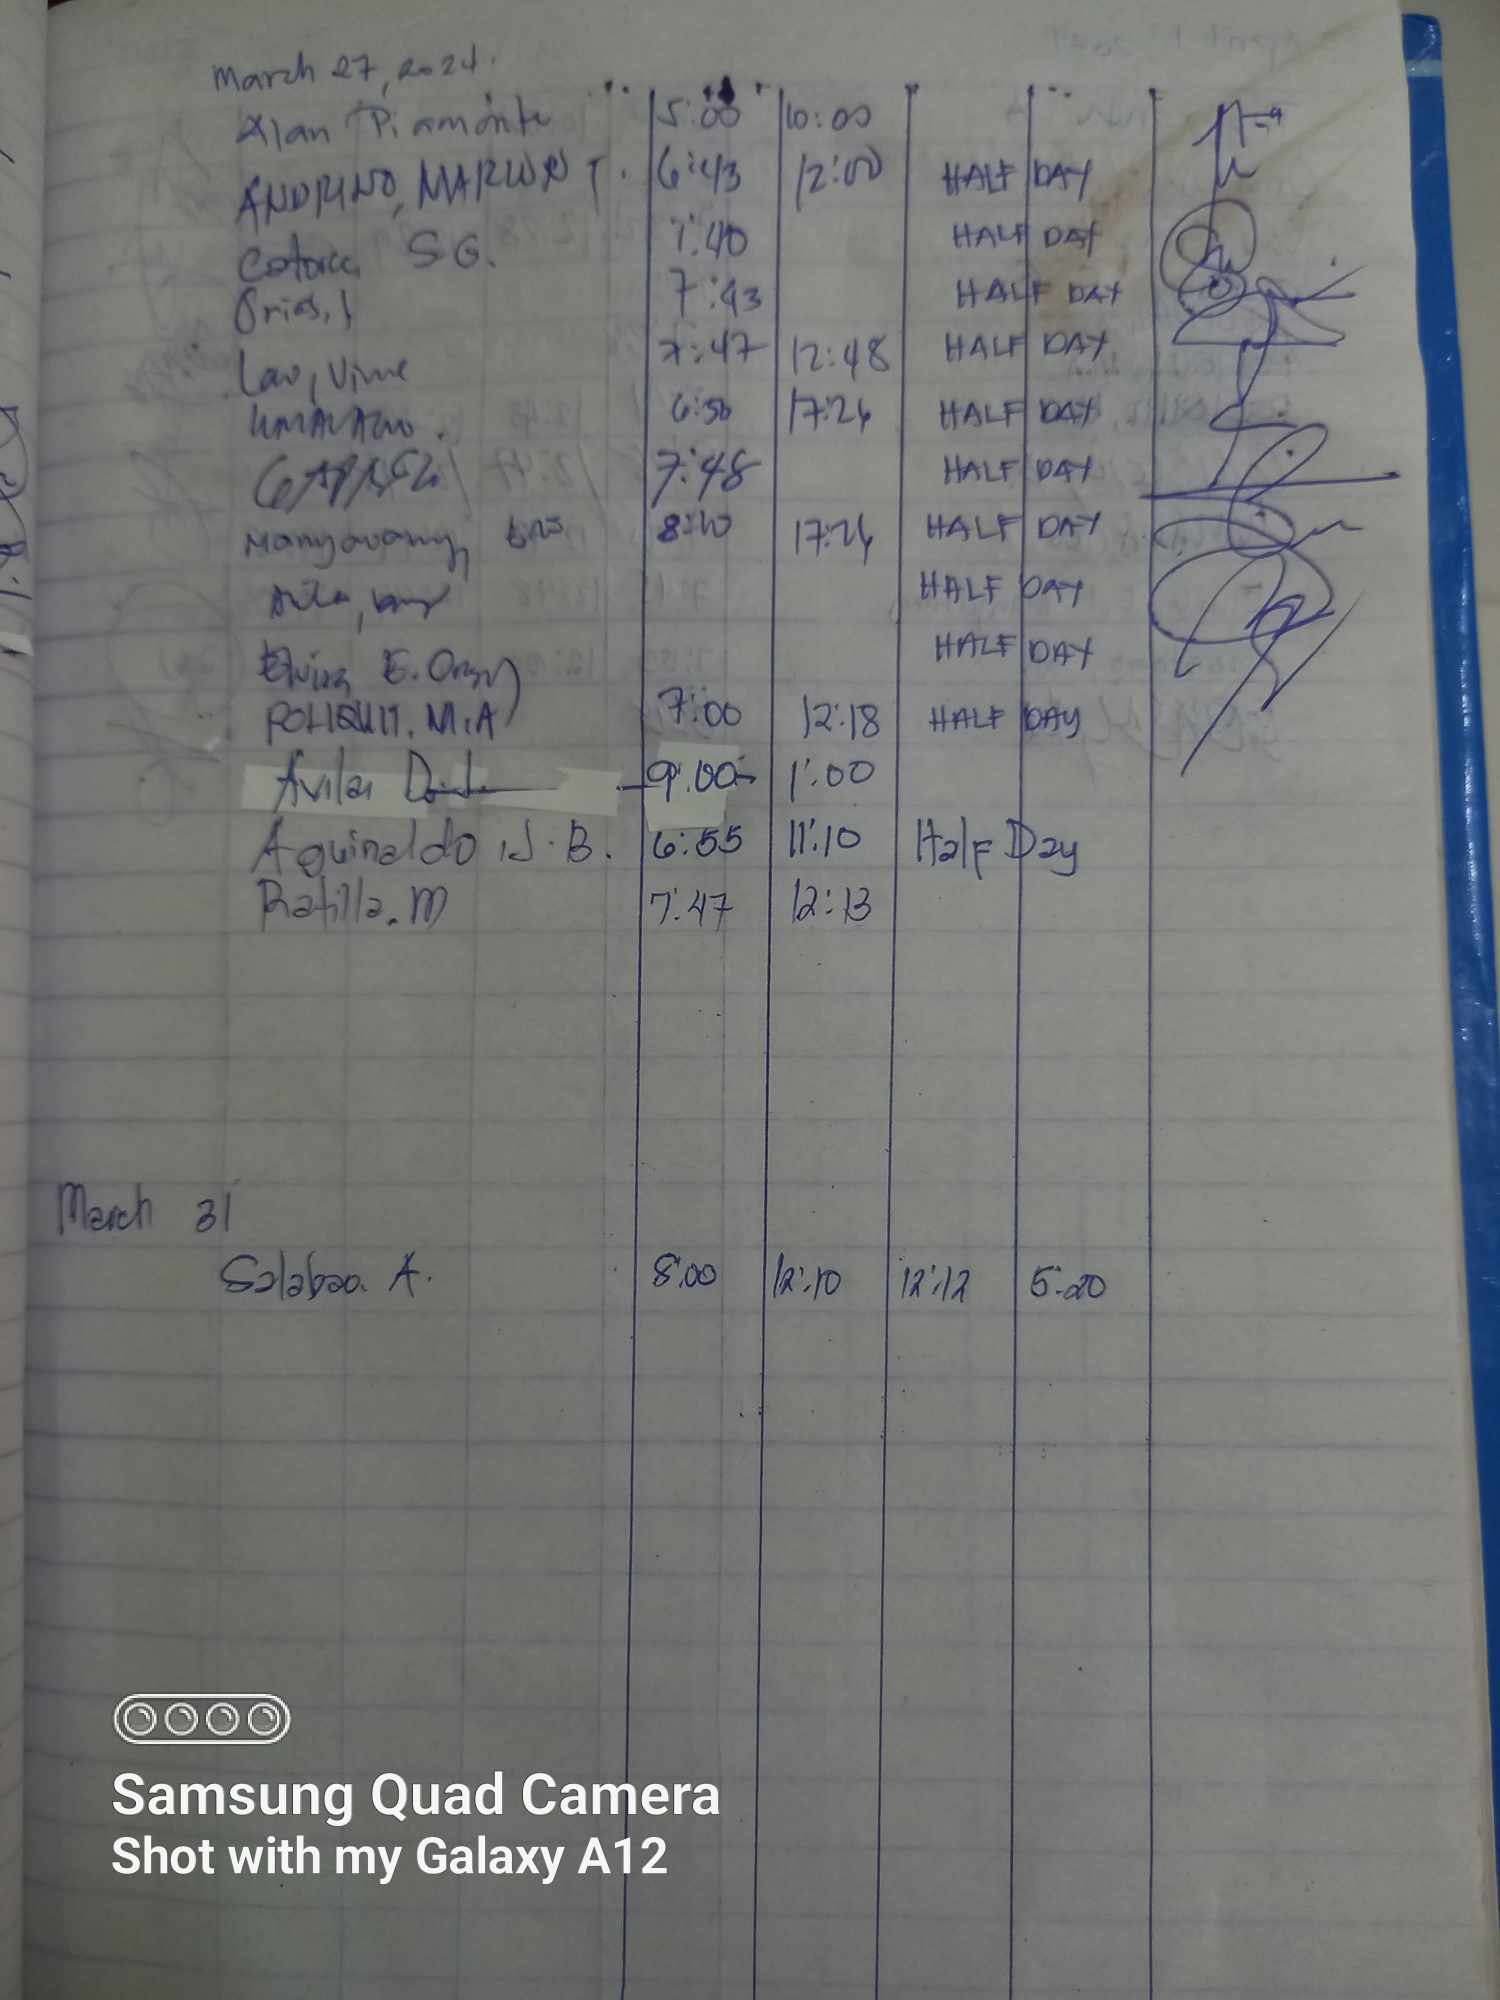 March 27, 2024.
Alan Piamonte 5:00 10:00
ANDRINO, MARLON T. 6:43 12:00 HALF DAY
S G. 7:40 HALF DAY
7:43 HALF DAY
Lao, 7:47 12:48 HALF DAY
6:50 17:26 HALF DAY
7:48 HALF DAY
8:10 17:26 HALF DAY
HALF DAY
E. HALF DAY
M.A 7:00 12:18 HALF DAY
Avila, 9:00 1:00
Aguinaldo, J. B. 6:55 11:10 Half Day
Ratilla. M 7:47 12:13
March 31
Salabao. A. 8:00 12:10 12:12 5:20
Samsung Quad Camera
Shot with my Galaxy A12